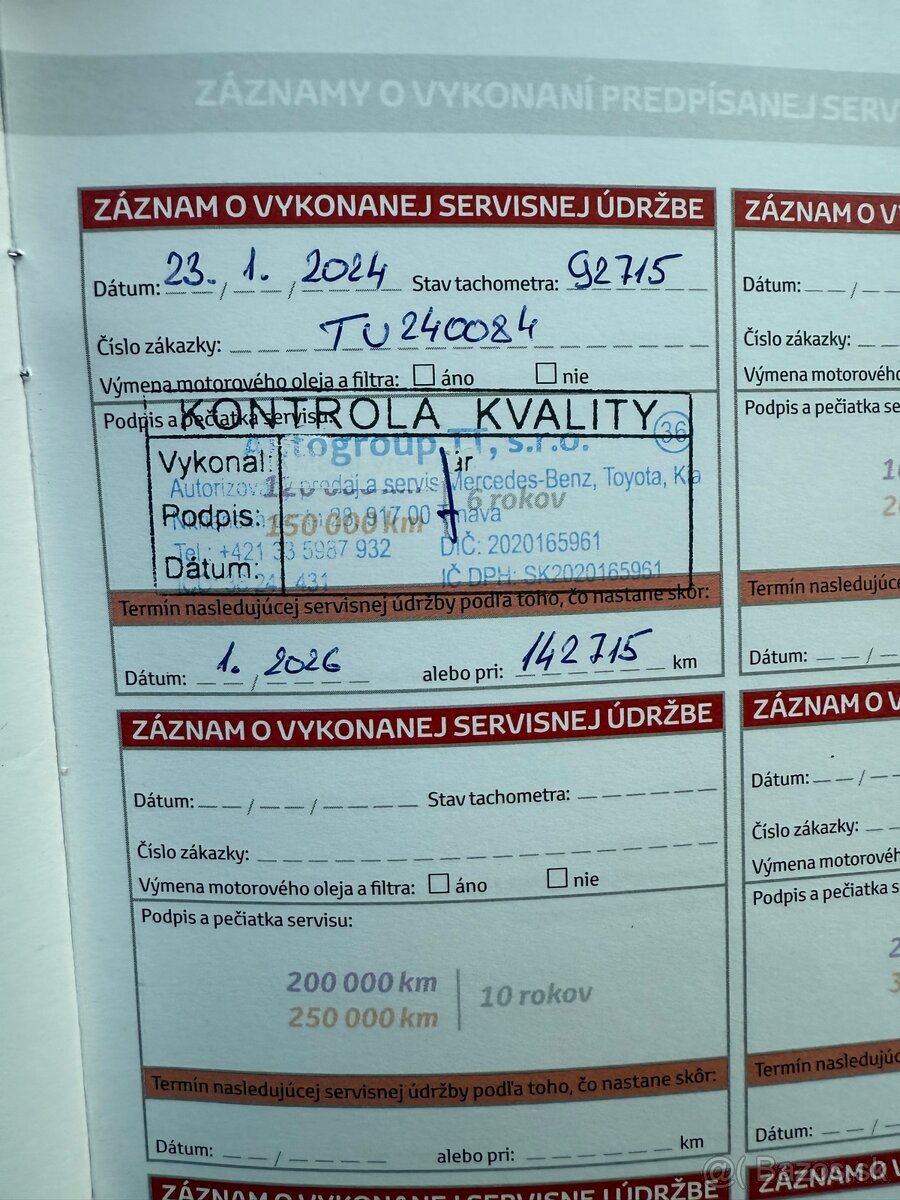 ZÁZNAMY O VYKONANÍ PREDPÍSANEJ SERV
ZÁZNAM O VYKONANEJ SERVISNEJ ÚDRŽBE
Dátum: 23. / 1. / 2024 Stav tachometra: 92715
Číslo zákazky: TU240084
Výmena motorového oleja a filtra: áno nie
Podpis a pečiatka servisu:
KONTROLA KVALITY
36
Autogroup TT, s.r.o.
Vykonal:
Autorizova predaj a servis Mercedes-Benz, Toyota, Kia
6 rokov
Podpis:
150 000 km
28, 917 00 Trnava
Tel.: +421 33 5987 932 DIČ: 2020165961
Dátum:
IČ DPH: SK2020165961
Termín nasledujúcej servisnej údržby podľa toho, čo nastane skôr:
Dátum: 1. / 2026 alebo pri: 142715 km
ZÁZNAM O VYKONANEJ SERVISNEJ ÚDRŽBE
Dátum: / / Stav tachometra:
Číslo zákazky:
Výmena motorového oleja a filtra: áno nie
Podpis a pečiatka servisu:
200 000 km
250 000 km
10 rokov
Termín nasledujúcej servisnej údržby podľa toho, čo nastane skôr:
Dátum: / alebo pri: km
ZÁZNAM O VYKONANEJ SERVISNEJ ÚDRŽBE
ZÁZNAM O V
Dátum: /
Číslo zákazky:
Výmena motorového
Podpis a pečiatka s
Termín nasledujúce
Dátum: /
ZÁZNAM O V
Dátum: /
Číslo zákazky:
Výmena motorovéh
Podpis a pečiatka s
Termín nasledujúc
Dátum: /
ZÁZNAM O V
Bazos.sk